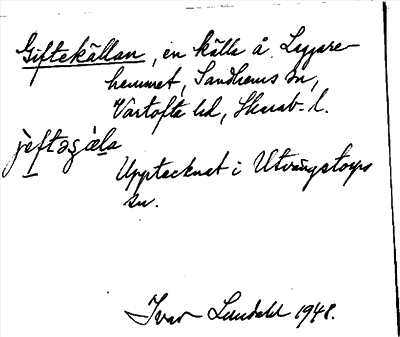 Giftekällan, en källa å Laggare-
hemmet, Sandhems sn,
Vartofta hd, Skarab. l.
jèftəɡæ̀la
Upptecknat i Utvängstorps
sn.
Ivar Lundahl 1948.